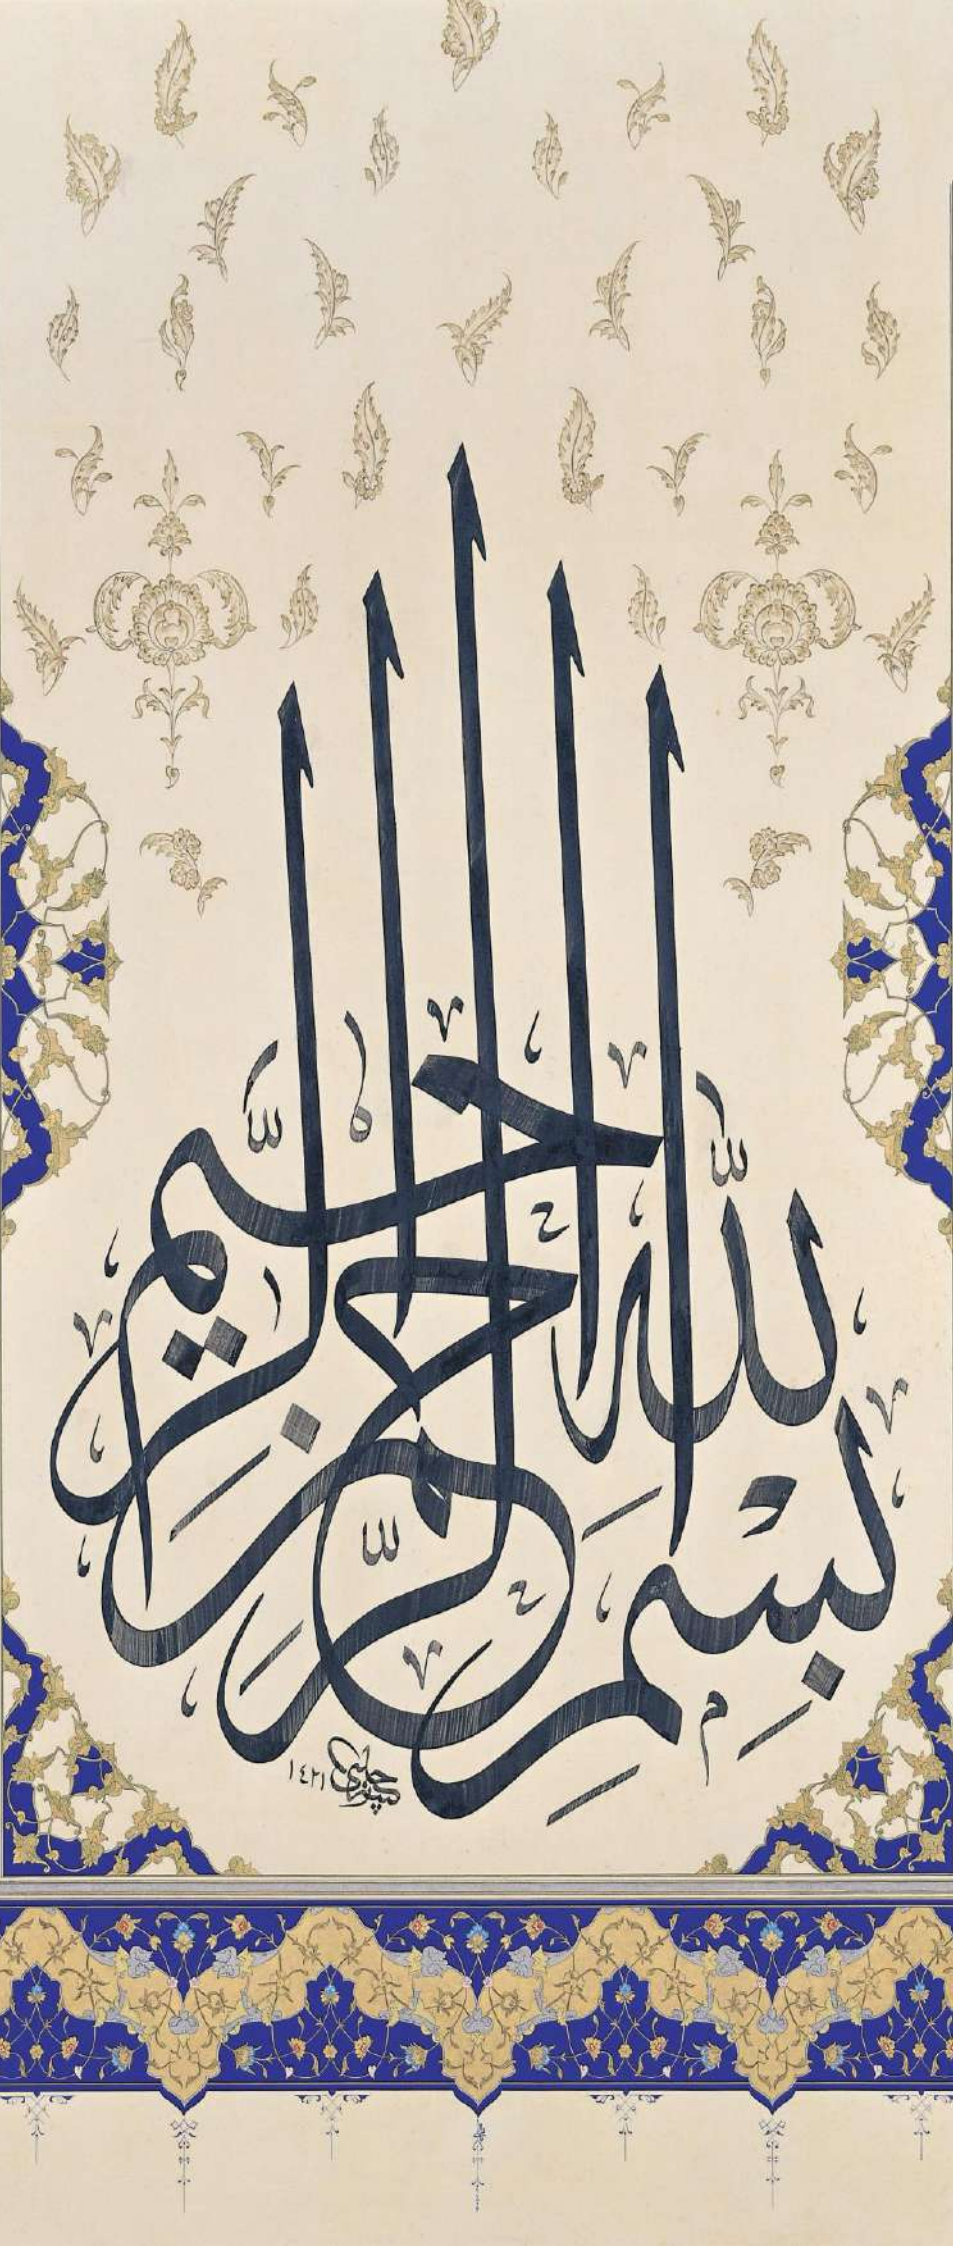 بِسْمِ اللّٰهِ الرَّحْمٰنِ الرَّحِيمِ
١٤٢١